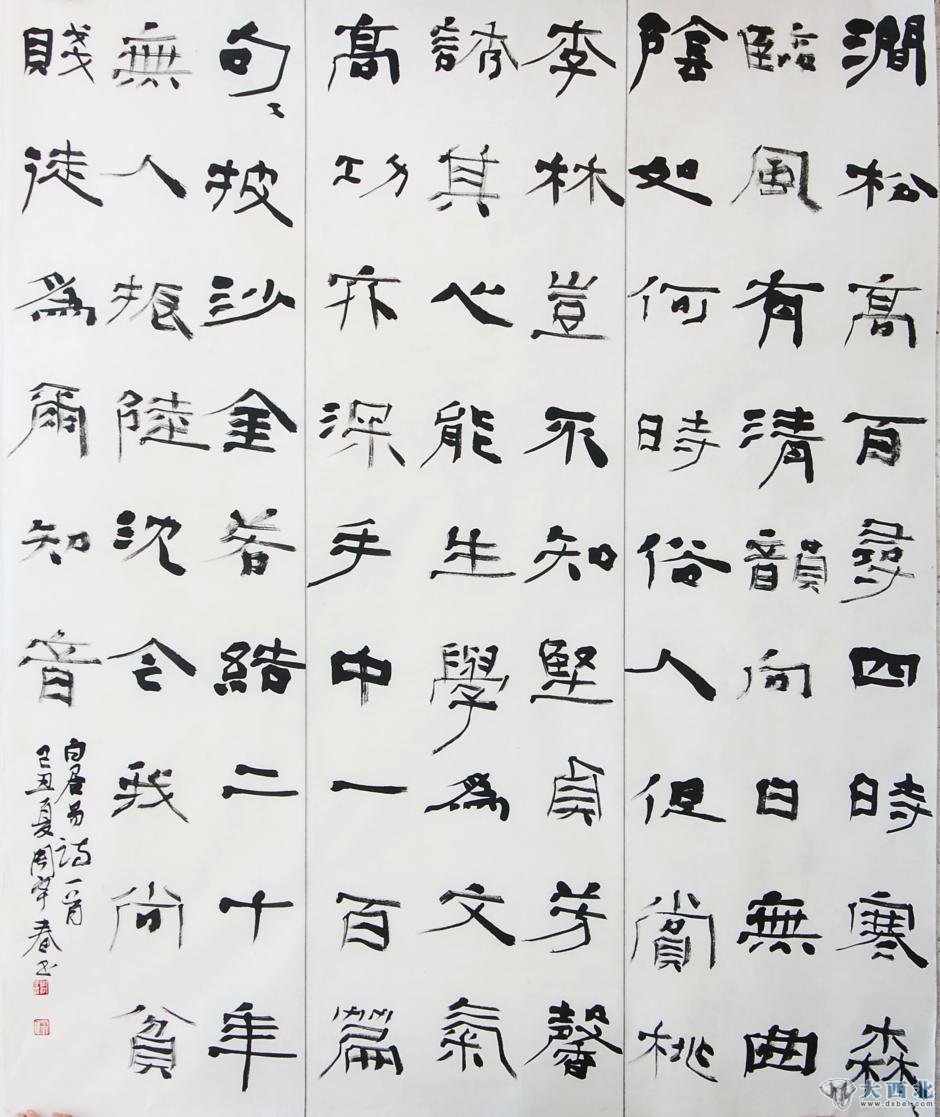 澗松高百尋四時寒森
臨風有清韻向日無曲
陰如何時俗人但賞桃
李林豈不知堅貞芳馨
誘其心能生學為文氣
高功亦深手中一百篇
句〻披沙金苦結二十年
無人振陸沈今我尚貧
賤徒為爾知音
白居易詩一首
己丑夏周 春書
大西北
www.dxbei.com